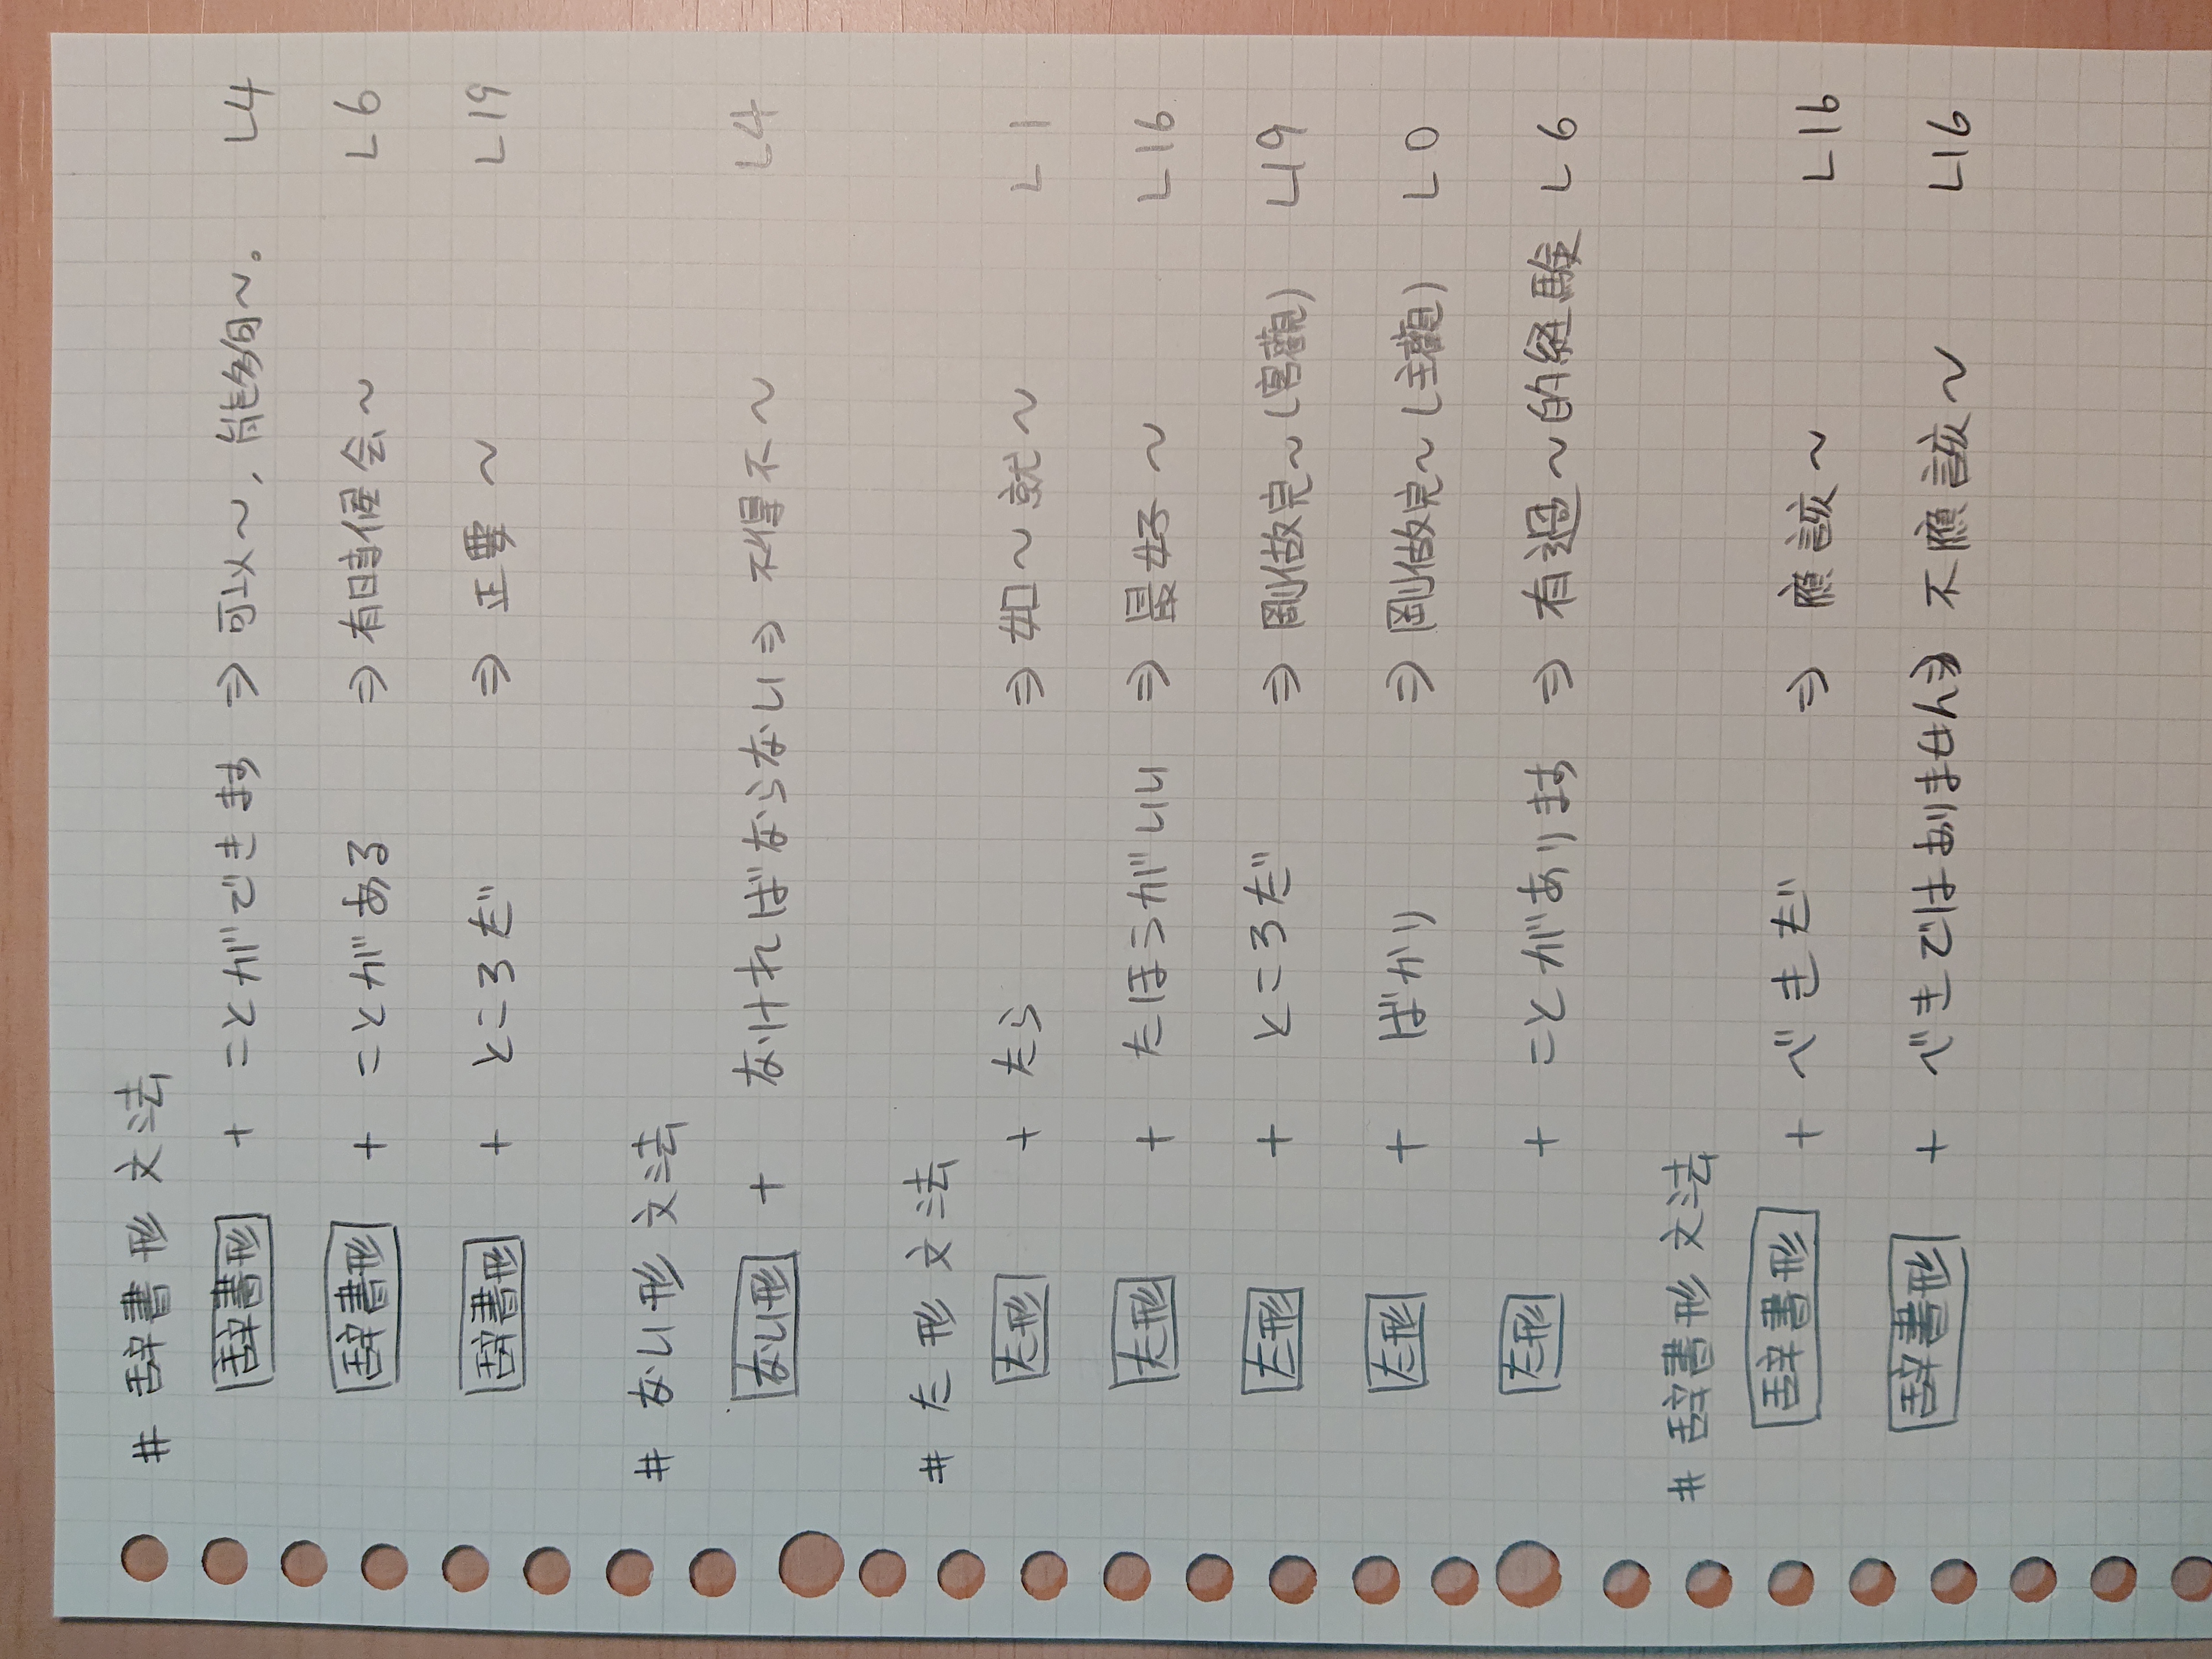 # 辞書形文法
辞書形 + ことができます ⇒ 可以～, 能夠～。 L4
辞書形 + ことがある ⇒ 有時候会～ L6
辞書形 + ところだ ⇒ 正要～ L19
# ない形文法
ない形 + なければならない ⇒ 不得不～ L4
# た形文法
た形 + たら ⇒ 如～就～ L1
た形 + たほうがいい ⇒ 最好～ L16
た形 + ところだ ⇒ 剛做完～(客觀) L19
た形 + ばかり ⇒ 剛做完～(主觀) L0
た形 + ことがあります ⇒ 有過～的経験 L6
# 辞書形文法
辞書形 + べきだ ⇒ 應該～ L16
辞書形 + べきではありません⇒ 不應該～ L16